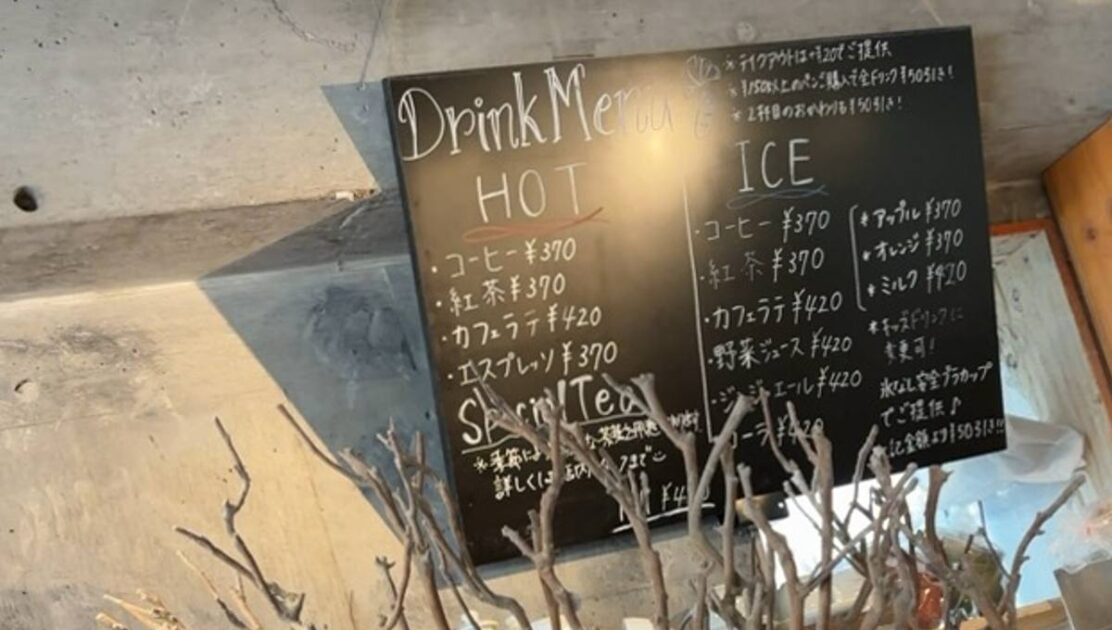 Drink Menu
※テイクアウトは+¥20でご提供
以上のパンご購入で全ドリンク¥50引き!
※2杯目のおかわりも¥50引き!
HOT
・コーヒー¥370
・紅茶¥370
・カフェラテ¥420
・エスプレッソ¥370
Special Tea
※季節に
詳しくは店内 まで
ICE
・コーヒー¥370
・紅茶¥370
・カフェラテ¥420
・野菜ジュース¥420
・ジンジャエール¥420
コーラ¥420
*アップル¥370
*オレンジ¥370
*ミルク¥420
*キッズドリンクに
変更可!
氷なし安全プラカップ
でご提供♪
記金額より¥50引き!!